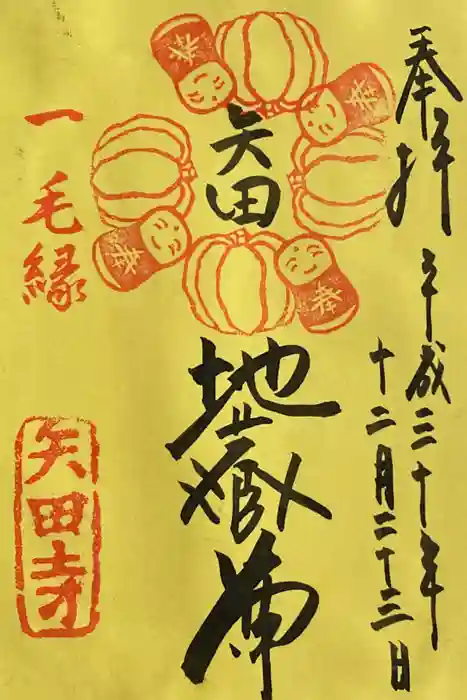 奉拝
平成三十年
十二月二十三日
矢田
地蔵尊
奉
奉
奉
奉
一毛縁
矢田寺